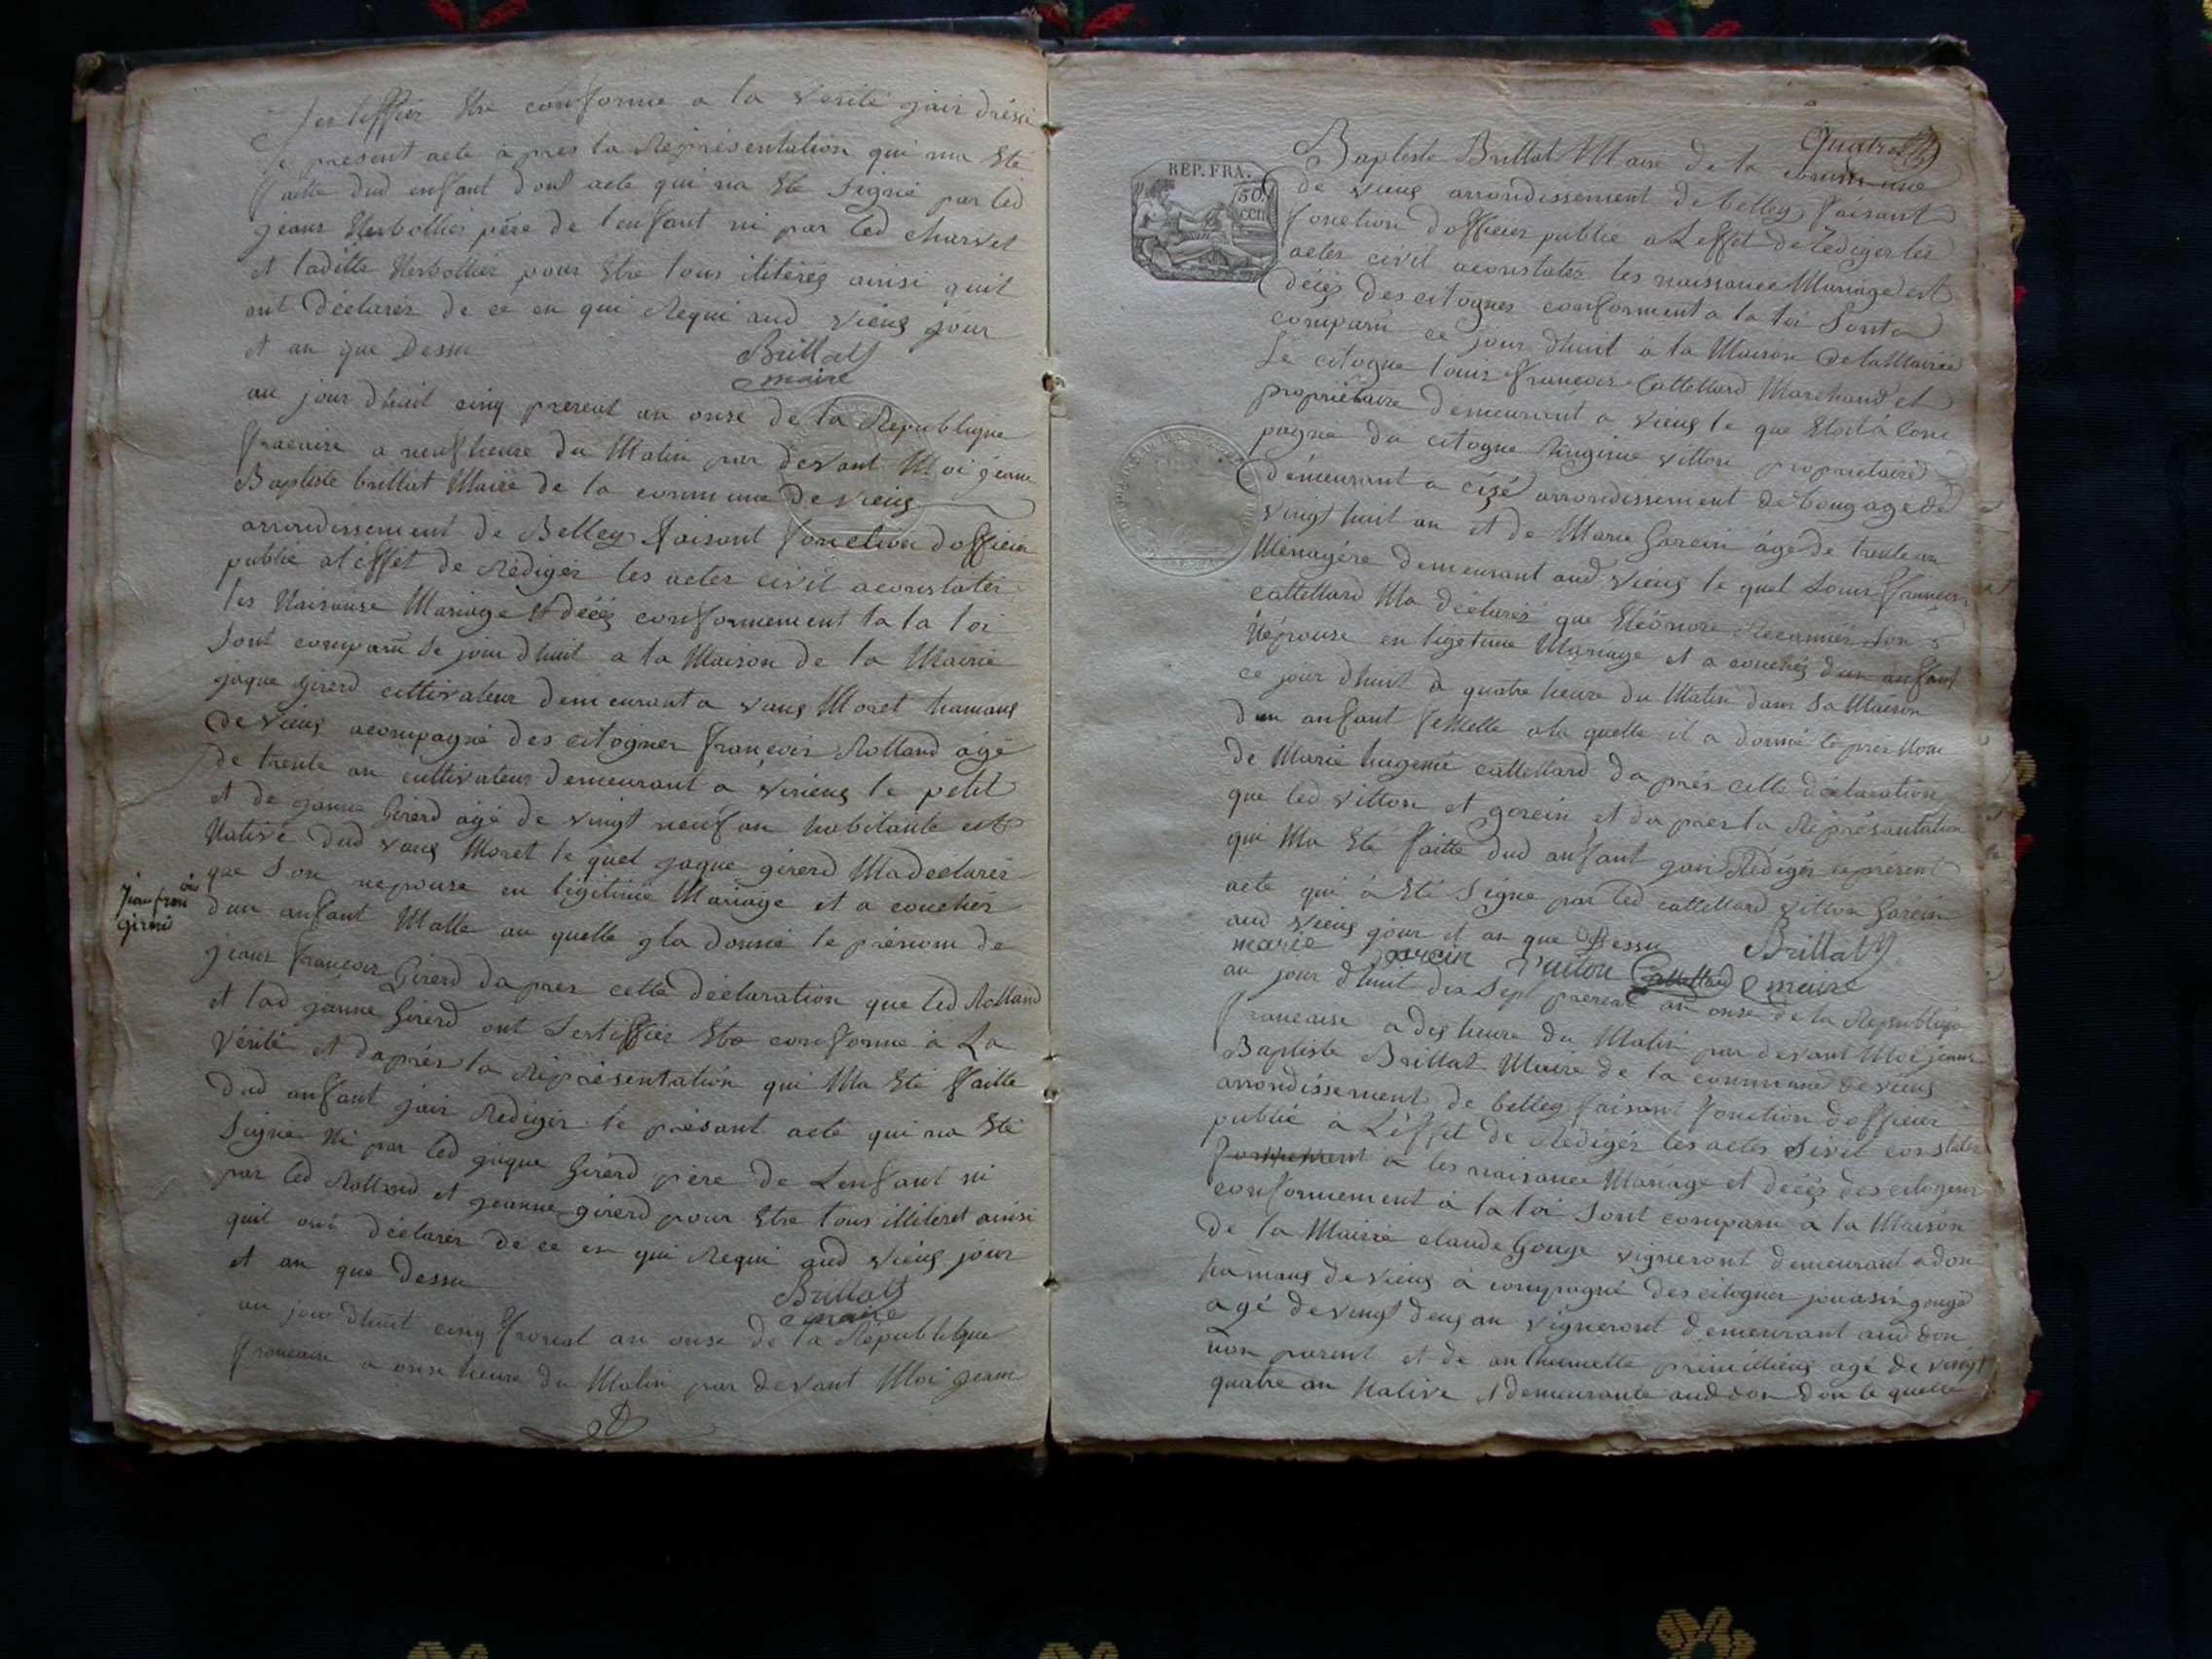 Sertiffier Etre conforme a la verité jair dréssé
le present acte a pres la Réprésentation qui ma Eté
faitte dud enfant dont acte qui na Eté Signé par led
jeans Herbollier père de lenfant ni par led charvet
et laditte Herbollier pour Etre tous ilitérés ainsi quil
ont déclarér de ce en qui Requi aud vieug jour
et an que Dessu
Brillat
maire
au jour dhuit cinq prereal an onse de la Republique
francaise a neuf heure du Matin par devant Moi jeane
Baptiste brillat Maire de la commune de vieug
arrondissement de Belley faisant fonction dofficier
public a leffét de Rédigér les actes civil aconstater
les Naisanse Mariage Et décés conformement ta la loi
Sont comparu Se jour dhuit a la Maison de la Mairie
jaque Girerd cultivateur demeurant a vaug Moret hamaug
de vieug acompagné des citogner francoir Rolland agé
de trente an cultivateur demeurant a virieug le petit
et de janne Girerd agé de vingt neuf an habitante est
Native dud vaug Moret le quel jaque girerd Ma déclarér
que Son nepouse en légitime Mariage et a couchér
dun anfant Malle au quelle gla donné le prénom de
jean francois
girerd
jeans francoir Girerd dapres cette déclaration que led Rolland
et lad janne Girerd ont Sertiffiér Etre conforme à La
vérité et daprés la Réprésentation qui Ma Eté faitte
dud anfant jair Redigér le présant acte qui na Eté
Signé Ni par led jaque Girerd pére de Lenfant ni
par led Rolland et jeanne girerd pour Etre tous illiteret ainsi
quil ont déclarér de ce en qui Requi aud vieug jour
et an que dessu
Brillat
maire
au jour dhuit cinq floreal an onse de la République
francaise a onse heure du Matin par devant Moi jeane
Quatre
REP. FRA.
50.
cen
Baptiste Brillat Maire de la commune
de vieug arrondissement de belley faisant
fonction dofficier public a Leffet de Redigerles
actes civil aconstatér les naissance Mariage est
décés des citognes conforment a la loi Sont
comparu ce jour dhuit à la Maison de la Mairie
Le citogne louis francois Cattellard Marchand et
propriétaire demeurant a vieug le que Etoit a com
pagne du citogne vitton propriétaire
demeurant a cisé arrondissement de boug age de
vingt huit an et de Marie Garcin agé de trente an
Ménagére demeurant aud vieug le quel Louis francois
cattellard Ma déclarér que Eléonore Recamier Son
Népouse en ligetime Mariage et a couchér dun anfant
ce jour dhuit à quatre heure du Matin dans Sa Maison
dun anfant femelle ala quelle il a donné le pres Nom
de Marie hugenie cattellard daprés cette déclaration
que led vitton et garcin et da pres la Réprésantation
qui Ma Eté faitte dud anfant jair Redigér le présent
acte qui à Eté Signe par led cattellard vitton Garcin
aud vieug jour et an que Dessu
Brillat
marie garcin Vuiton Cattellard maire
au jour dhuit dix Sept prereal an onse de la Republiqe
francaise a dix heure du Matin par devant Moi jeane
Baptiste Brillat Maire de la commune de vieug
arrondissement de belley faisant fonction dofficier
public à Léffet de Rédigér les actes Sivil constatér
a les naisance Mariage et décés des citogens
conformement à la loi Sont comparu à la Maison
de la Mairie claude Gouge vigneront demeurant a don
hamaug de vieug à compagné des citogner gouge
agé de vingt deug an vigneront demeurant aud don
non parent et de anthumette agé de vingt
quatre an Native et demeurante aud don don le quelle